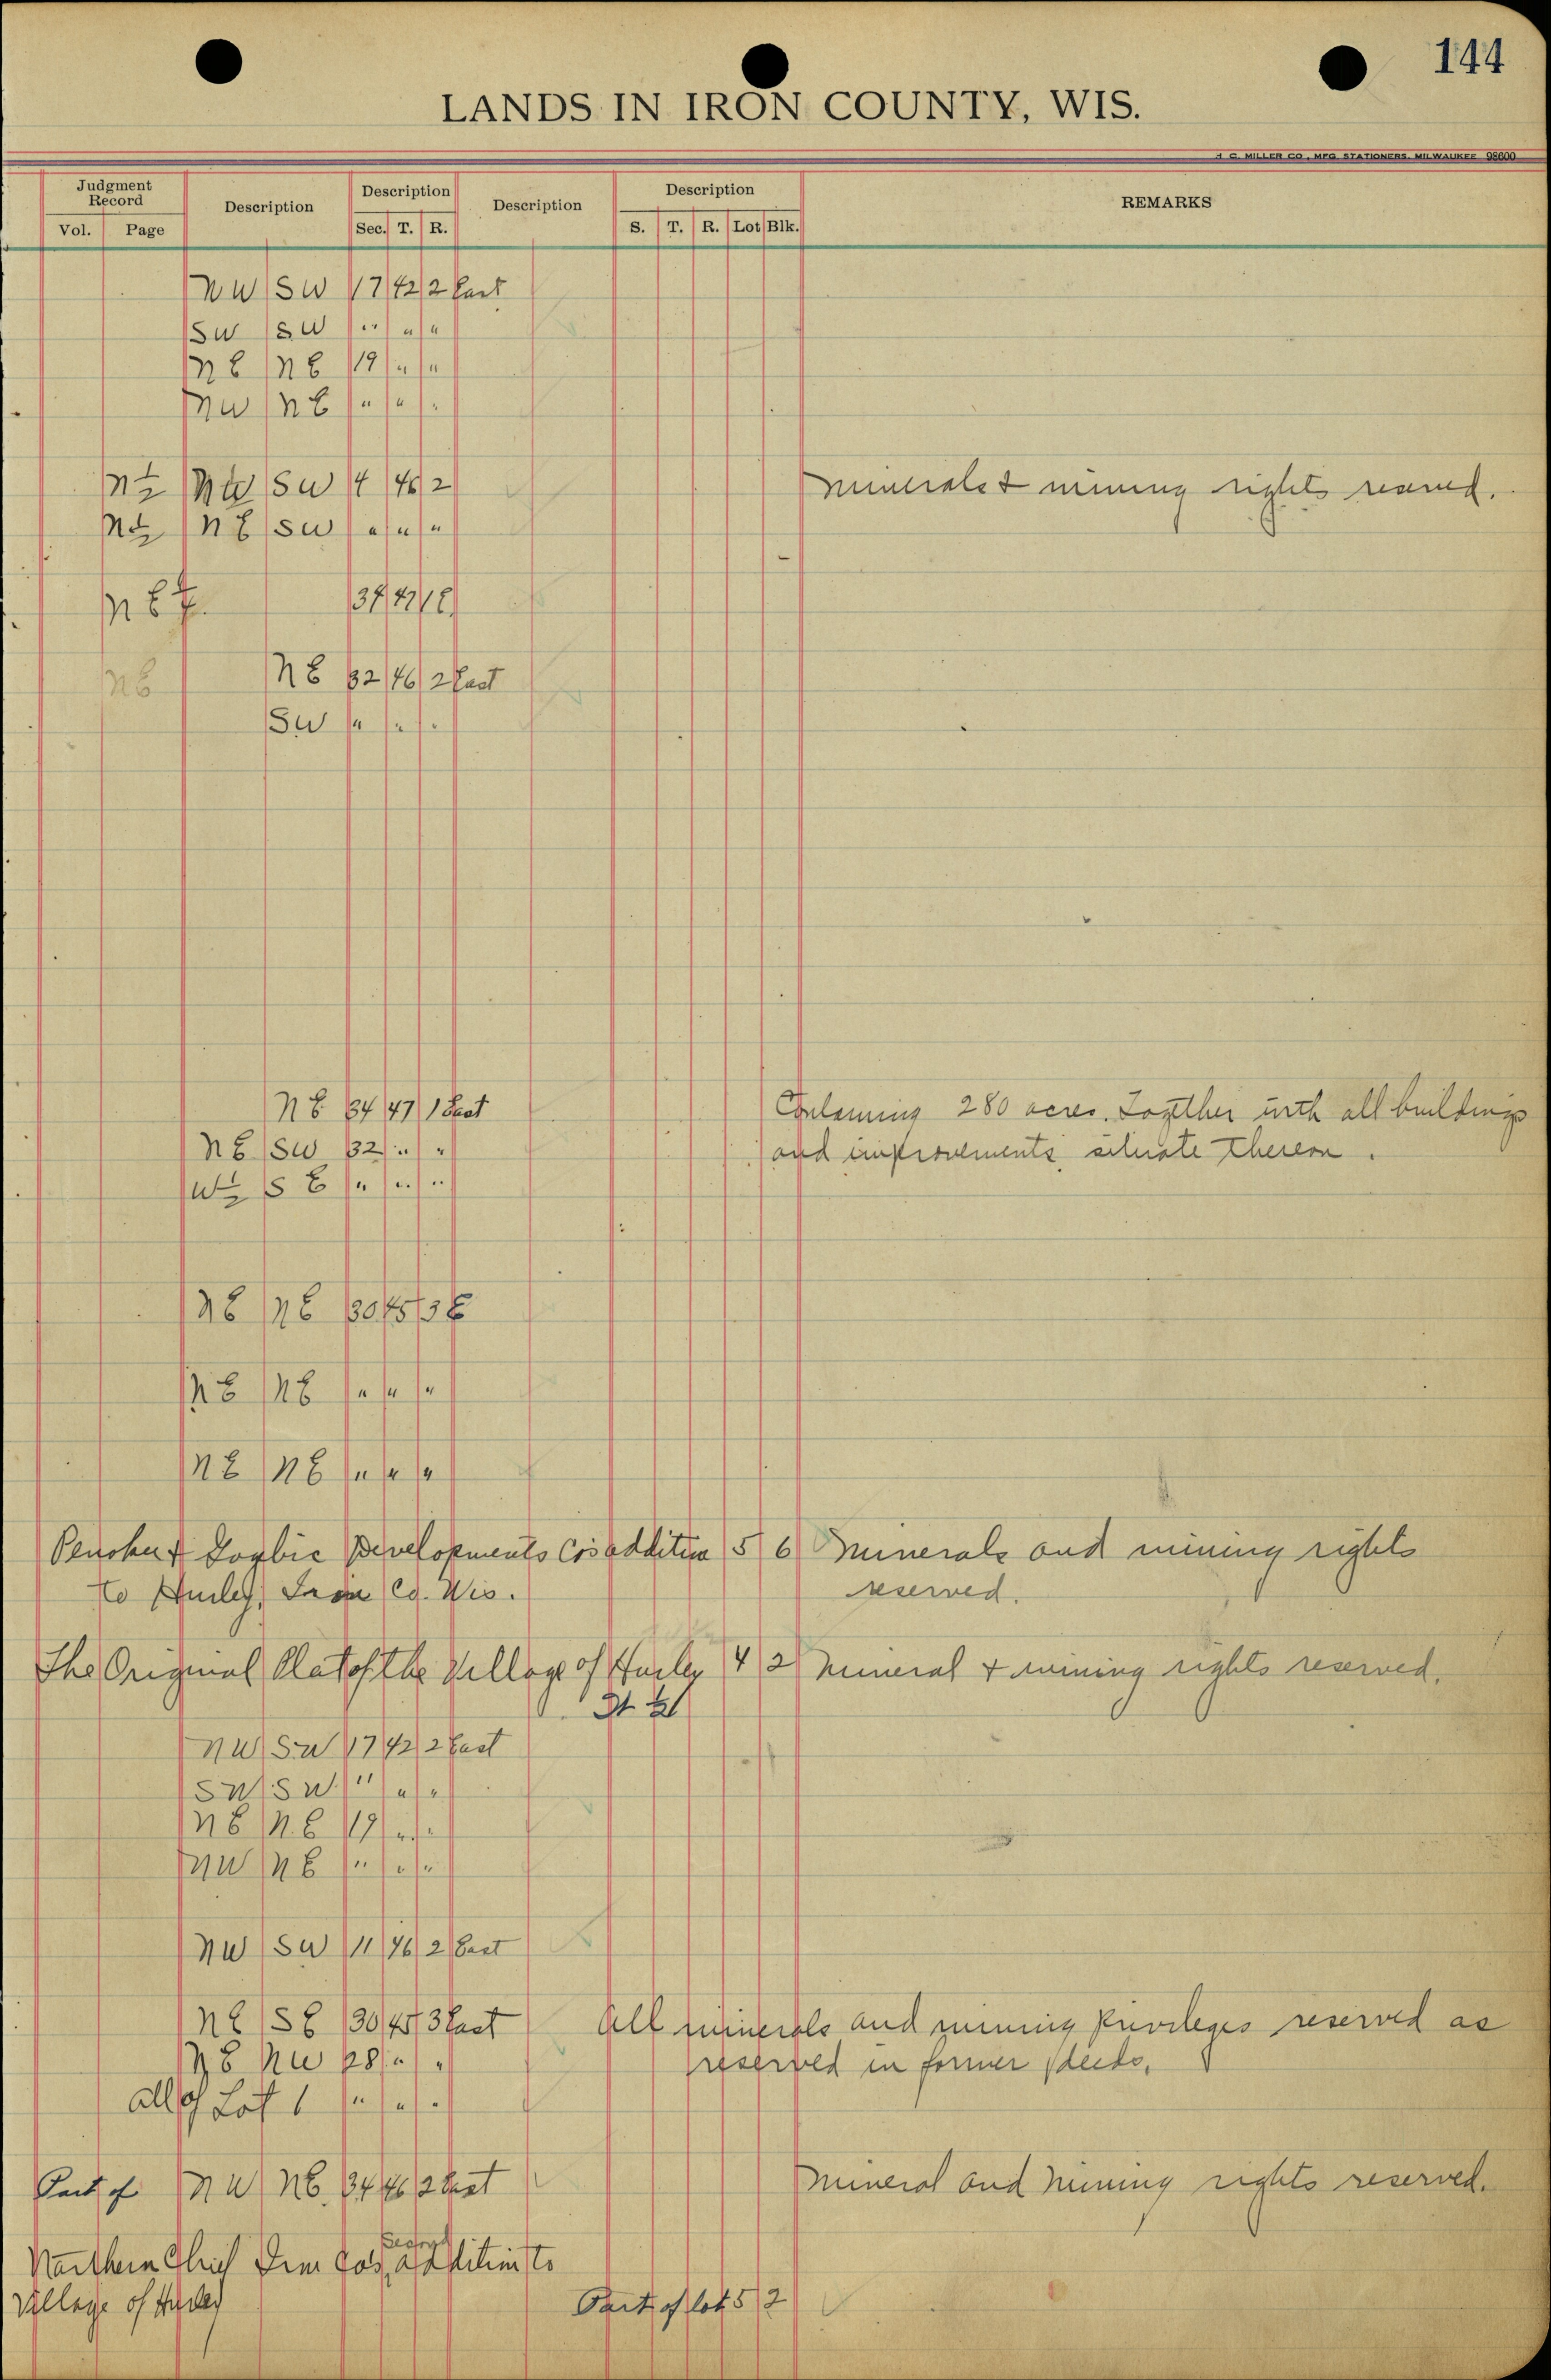 144
LANDS IN IRON COUNTY, WIS.
H C. MILLER CO., MFG. STATIONERS, MILWAUKEE 98600
Judgment Record Description Description Description Description REMARKS
Vol. Page Sec. T. R. S. T. R. Lot Blk.
NW SW 17 42 2 East
SW SW " " "
NE NE 19 " "
NW NE " " "
N½ NW SW 4 46 2 Minerals & mining rights reserved.
N½ NE SW " " "
NE¼ 34 47 1E
NE NE 32 46 2 East
SW " " "
NE 34 47 1 East Containing 280 acres. Together with all buildings
NE SW 32 " " and improvements situate thereon.
W½ SE " " "
NE NE 30 45 3E
NE NE " " "
NE NE " " "
Penokee & Gogbic Developments Cos addition 5 6 Minerals and mining rights
to Hurley, Iron Co. Wis. reserved.
The Original Plat of the Village of Hurley 4 2 Mineral & mining rights reserved.
NW SW 17 42 2 East
SW SW " " "
NE NE 19 " "
NW NE " " "
NW SW 11 46 2 East
NE SE 30 45 3 East All minerals and mining privileges reserved as
NE NW 28 " " reserved in former deeds.
all of Lot 1 " " "
Part of NW NE 34 46 2 East Mineral and Mining rights reserved.
Second
Northern Chief Iron Cos. addition to
Village of Hurley Part of lot 5 2